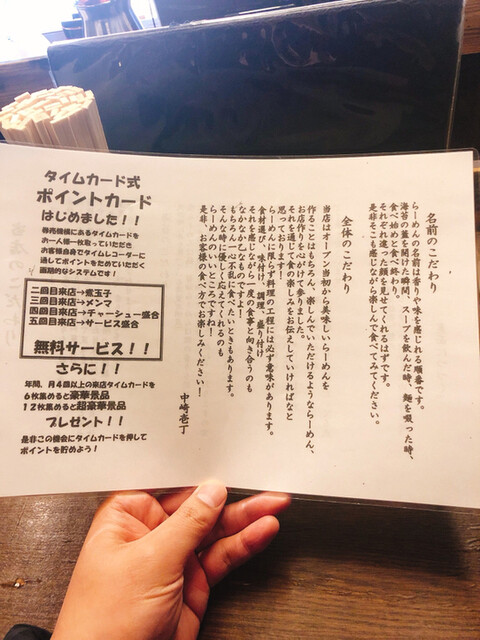 名前のこだわり
らーめんの名前は香りや味を感じれる順番です。
海苔の蓋を開けた瞬間、スープを飲んだ時、麺を啜った時、
食べ始めと食べ終わり。
それぞれ違った顔を見せてくれるはずです。
是非そこも感じながら楽しんで食べてみてください。
全体のこだわり
当店はオープン当初から美味しいらーめんを
作ることはもちろん、楽しんでいただけるようならーめん、
お店作りを心がけて参りました。
それを通じて食の楽しみをお伝えしていければなと
思っております!
らーめんに限らず料理の工程には必ず意味があります。
食材選び、味付け、調理、盛り付け
それを感じながら一度の食事と向き合うのも
なかなか乙なものです!
もちろん一心不乱に食べたいときもあります。
そんな時も優しく応えてくれるのも
らーめんのいいところですね!
是非、お客様の食べ方でお楽しみください!
中崎壱丁
タイムカード式
ポイントカード
はじめました!!
券売機横にあるタイムカードを
お一人様一枚取っていただき
お客様自身でタイムレコーダーに
通してポイントをためていただく
画期的なシステムです!
二回目来店→煮玉子
三回目来店→メンマ
四回目来店→チャーシュー盛合
五回目来店→サービス盛合
無料サービス!!
さらに!!
年間、月4回以上の来店タイムカードを
6枚集めると豪華景品
12枚集めると超豪華景品
プレゼント!!
是非この機会にタイムカードを押して
ポイントを貯めよう!